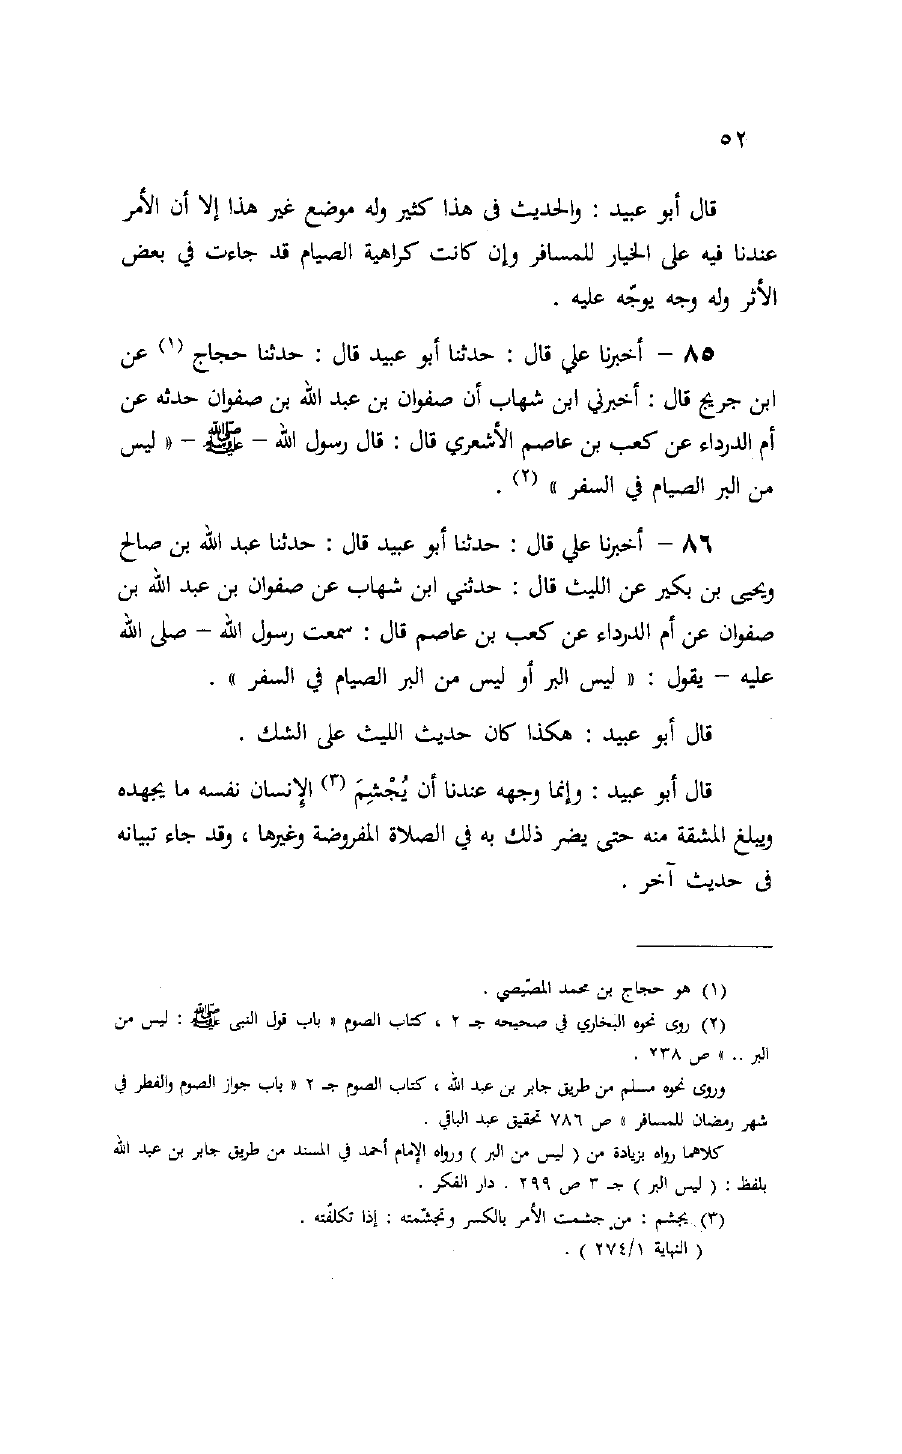 ٥٢
قال أبو عبيد : والحديث فى هذا كثير وله موضع غير هذا إلا أن الأمر
عندنا فيه على الخيار للمسافر وإن كانت كراهية الصيام قد جاءت في بعض
الأثر وله وجه يوجّه عليه .
٨٥ – أخبرنا علي قال : حدثنا أبو عبيد قال : حدثنا حجاج (١) عن
ابن جريج قال : أخبرني ابن شهاب أن صفوان بن عبد الله بن صفوان حدثه عن
أم الدرداء عن كعب بن عاصم الأشعري قال : قال رسول الله – ﷺ – « ليس
من البر الصيام في السفر » (٢) .
٨٦ – أخبرنا علي قال : حدثنا أبو عبيد قال : حدثنا عبد الله بن صالح
ويحيى بن بكير عن الليث قال : حدثني ابن شهاب عن صفوان بن عبد الله بن
صفوان عن أم الدرداء عن كعب بن عاصم قال : سمعت رسول الله – صلى الله
عليه – يقول : « ليس البر أو ليس من البر الصيام في السفر » .
قال أبو عبيد : هكذا كان حديث الليث على الشك .
قال أبو عبيد : وإنما وجهه عندنا أن يُجْشِمَ (٣) الإنسان نفسه ما يجهده
ويبلغ المشقة منه حتى يضر ذلك به في الصلاة المفروضة وغيرها ، وقد جاء تبيانه
فى حديث آخر .
(١) هو حجاج بن محمد المصّيصي .
(٢) روى نحوه البخاري في صحيحه جـ ٢ ، كتاب الصوم « باب قول النبى ﷺ : ليس من
البر .. » ص ٢٣٨ .
وروى نحوه مسلم من طريق جابر بن عبد الله ، كتاب الصوم جـ ٢ « باب جواز الصوم والفطر في
شهر رمضان للمسافر » ص ٧٨٦ تحقيق عبد الباقي .
كلاهما رواه بزيادة من ( ليس من البر ) ورواه الإمام أحمد في المسند من طريق جابر بن عبد الله
بلفظ : ( ليس البر ) جـ ٣ ص ٢٩٩ . دار الفكر .
(٣) يجشم : من جشمت الأمر بالكسر وتجشّمته : إذا تكلفّته .
( النهاية ٢٧٤/١ ) .